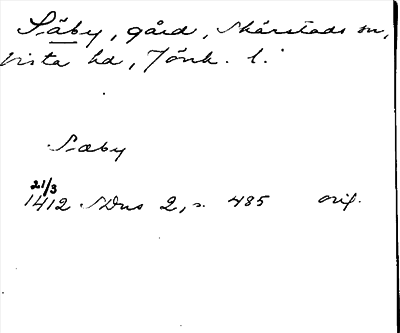 Säby, gård, Skärstads sn,
Vista hd, Jönk. l.
Saby
21/3
1412 SDns 2, s. 485 orig.